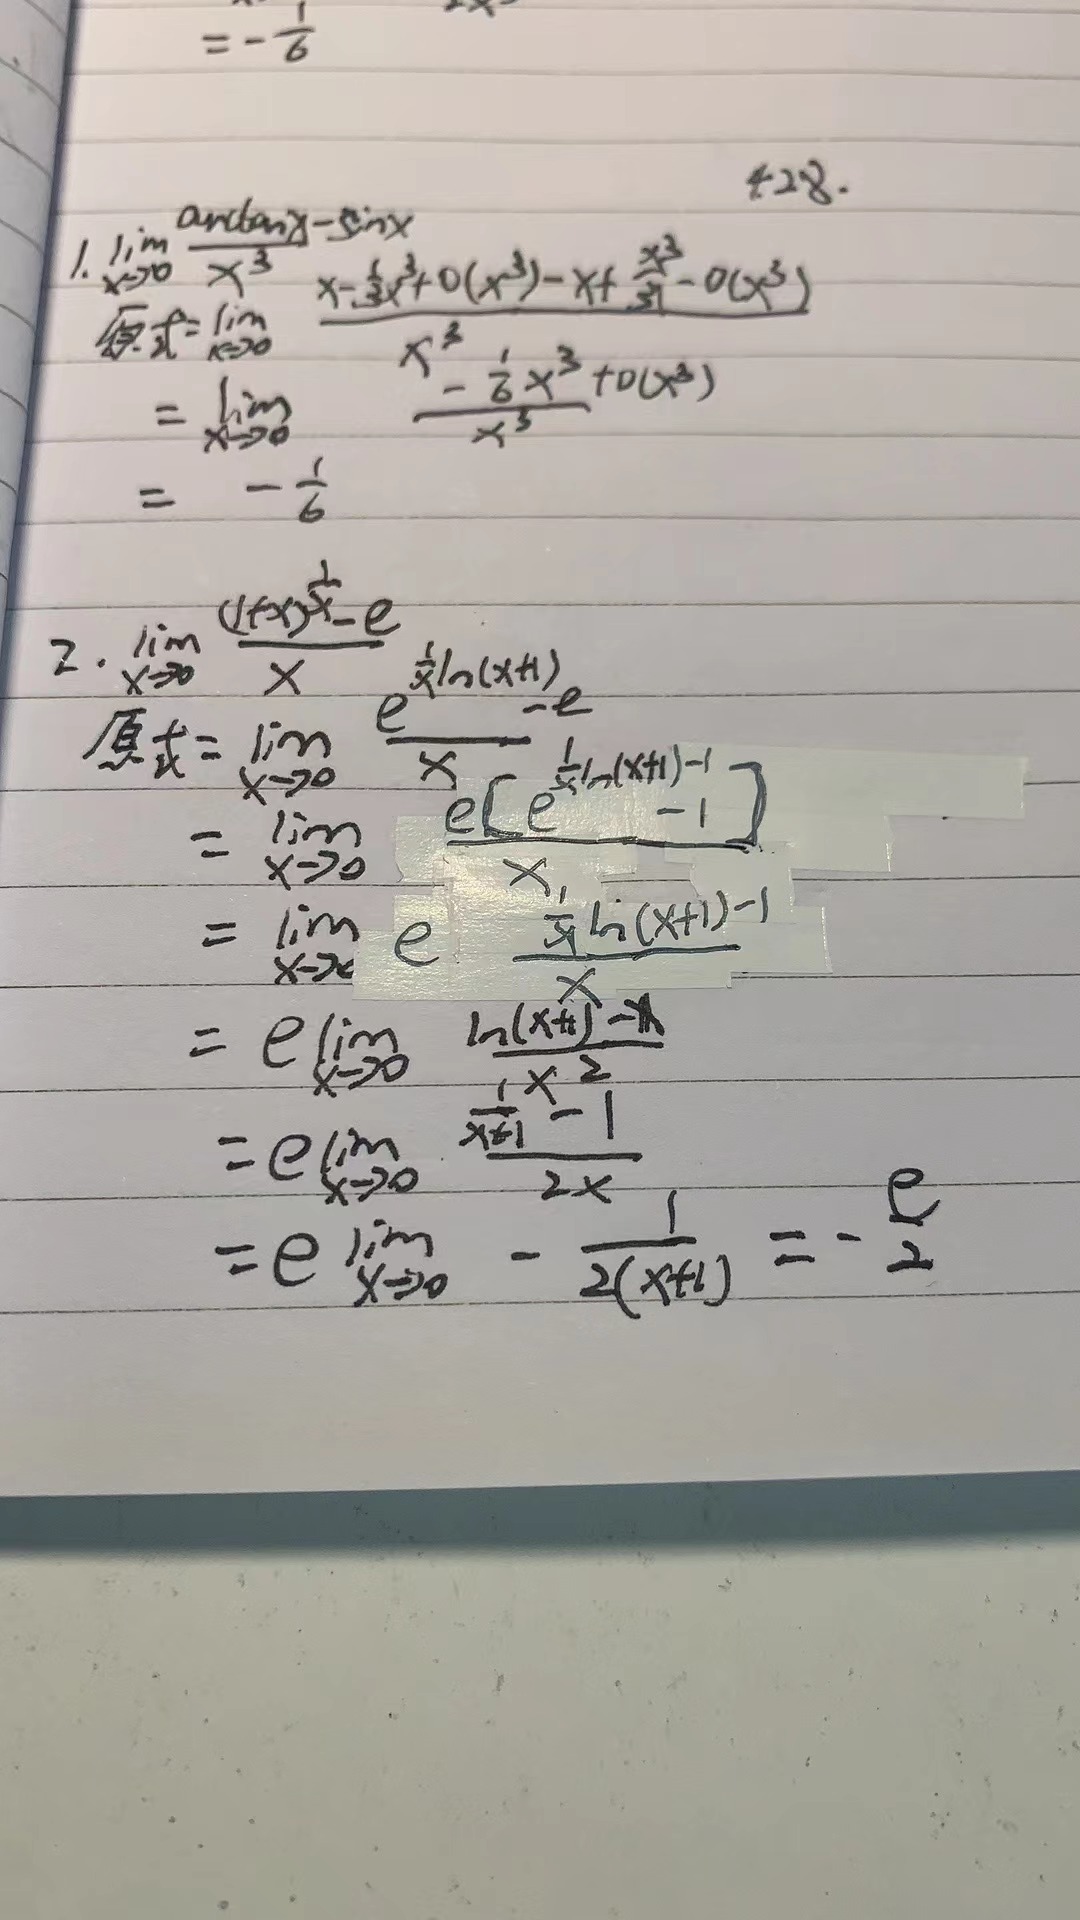 = -1/6
428.
1. lim x→0 (arctanx - sinx)/x³
原式 = lim x→0 (x - 1/3x³ + o(x³) - x + x³/3! - o(x³))/x³
= lim x→0 (-1/6x³ + o(x³))/x³
= -1/6
2. lim x→0 ((1+x)^(1/x) - e)/x
原式 = lim x→0 (e^(1/x ln(x+1)) - e)/x
= lim x→0 e[e^(1/x ln(x+1) - 1) - 1]/x
= lim e (1/x ln(x+1) - 1)/x
= e lim x→0 (ln(x+1) - x)/x²
= e lim x→0 (1/(x+1) - 1)/2x
= e lim x→0 - 1/(2(x+1)) = -e/2